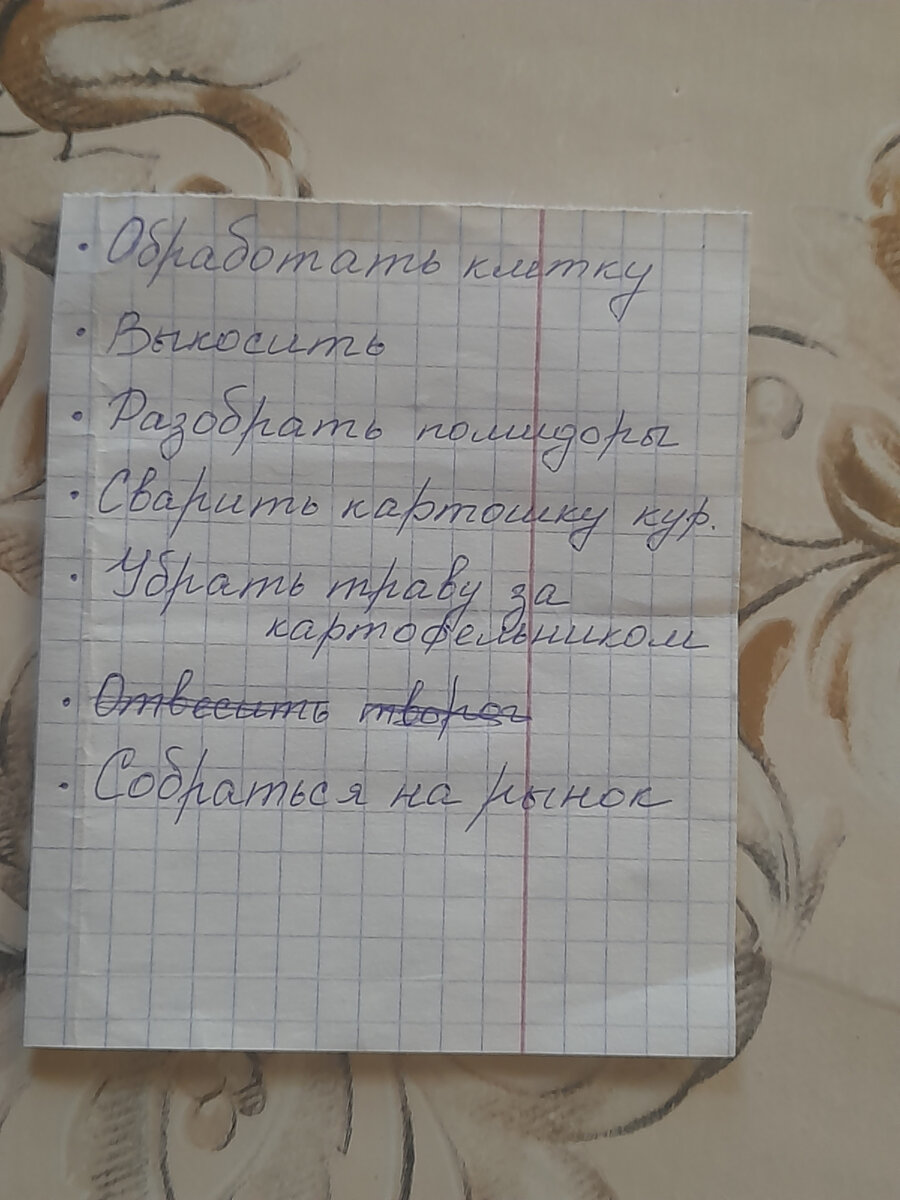 • Обработать клетку
• Выкосить
• Разобрать помидоры
• Сварить картошку кур.
• Убрать траву за
картофельником
• Отвесить творог
• Собраться на рынок